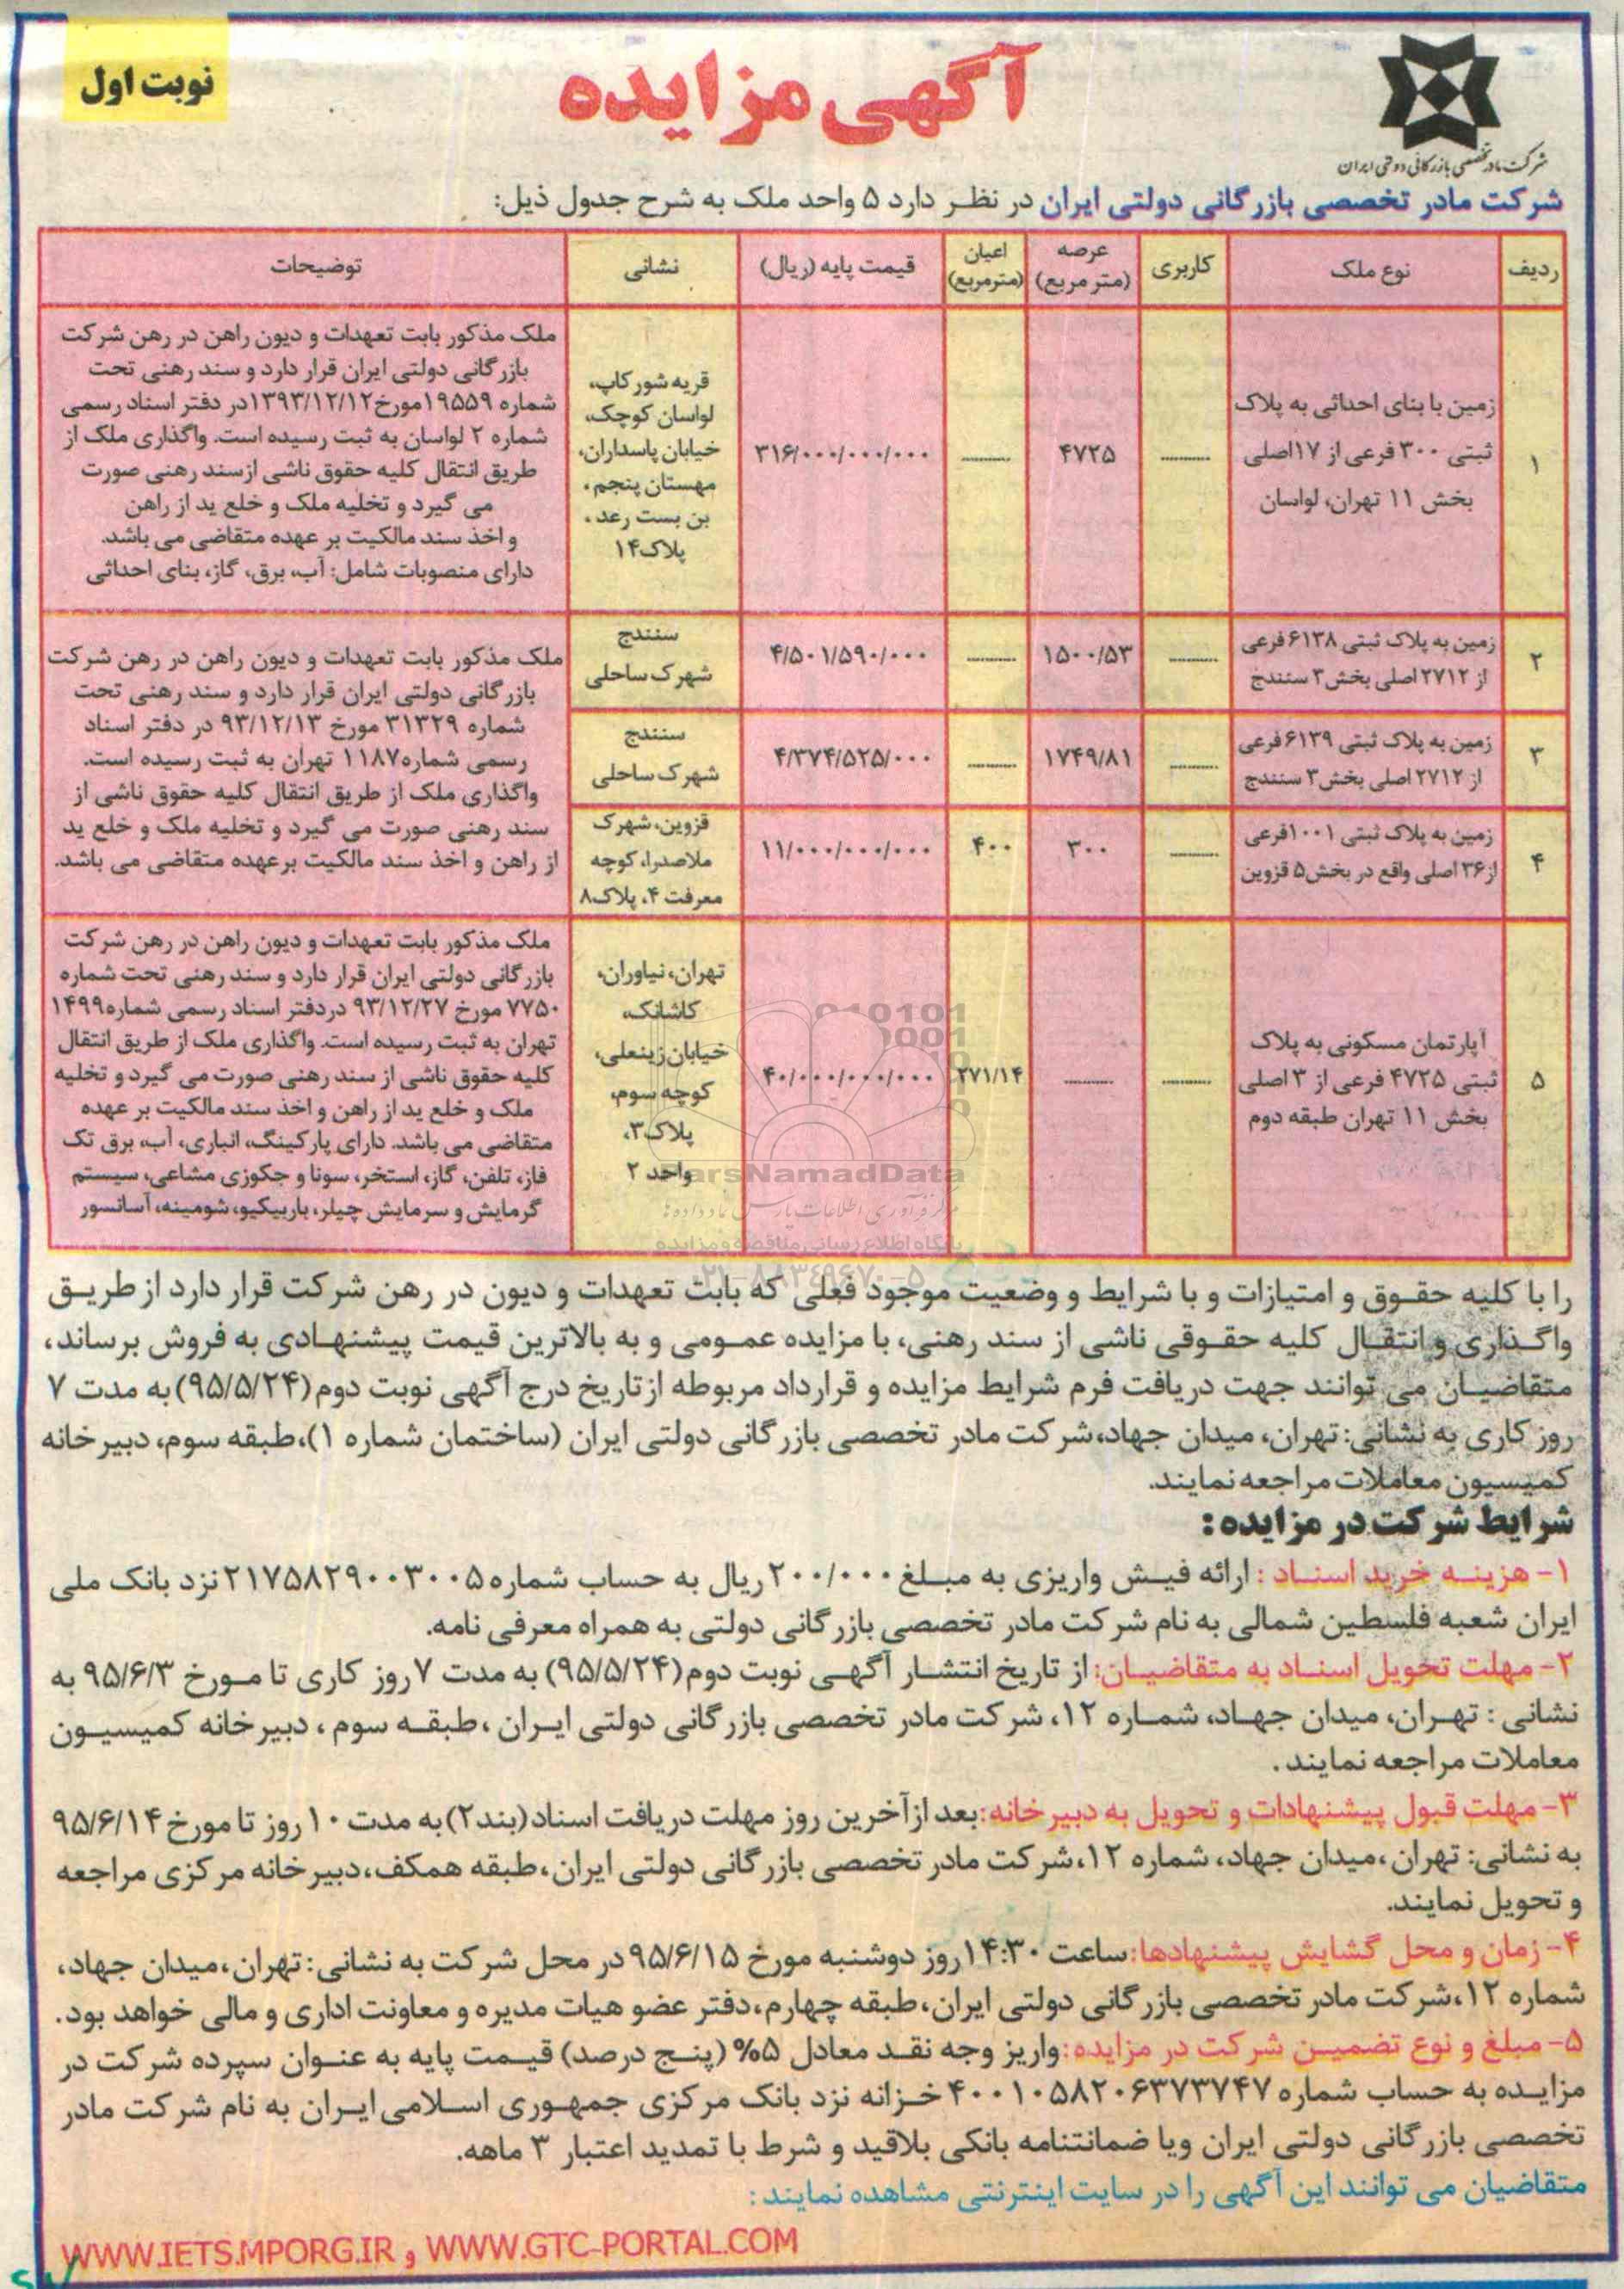 نوبت اول
آگهی مزایده
شرکت مادر تخصصی بازرگانی دولتی ایران
شرکت مادر تخصصی بازرگانی دولتی ایران در نظر دارد ۵ واحد ملک به شرح جدول ذیل:
ردیف
نوع ملک
کاربری
عرصه
(متر مربع)
اعیان
(مترمربع)
قیمت پایه (ریال)
نشانی
توضیحات
۱
زمین با بنای احداثی به پلاک
ثبتی ۳۰۰ فرعی از ۱۷اصلی
بخش ۱۱ تهران، لواسان
----------
۴۷۲۵
----------
۳۱۶/۰۰۰/۰۰۰/۰۰۰
قریه شورکاپ،
لواسان کوچک،
خیابان پاسداران،
مهستان پنجم،
بن بست رعد،
پلاک۱۴
ملک مذکور بابت تعهدات و دیون راهن در رهن شرکت
بازرگانی دولتی ایران قرار دارد و سند رهنی تحت
شماره ۱۹۵۵۹مورخ۱۳۹۳/۱۲/۱۲در دفتر اسناد رسمی
شماره ۲ لواسان به ثبت رسیده است. واگذاری ملک از
طریق انتقال کلیه حقوق ناشی ازسند رهنی صورت
می گیرد و تخلیه ملک و خلع ید از راهن
و اخذ سند مالکیت بر عهده متقاضی می باشد.
دارای منصوبات شامل: آب، برق، گاز، بنای احداثی
۲
زمین به پلاک ثبتی ۶۱۳۸فرعی
از ۲۷۱۲ اصلی بخش۳ سنندج
----------
۱۵۰۰/۵۳
----------
۴/۵۰۱/۵۹۰/۰۰۰
سنندج
شهرک ساحلی
ملک مذکور بابت تعهدات و دیون راهن در رهن شرکت
بازرگانی دولتی ایران قرار دارد و سند رهنی تحت
شماره ۳۱۳۲۹ مورخ ۹۳/۱۲/۱۳ در دفتر اسناد
رسمی شماره۱۱۸۷ تهران به ثبت رسیده است.
واگذاری ملک از طریق انتقال کلیه حقوق ناشی از
سند رهنی صورت می گیرد و تخلیه ملک و خلع ید
از راهن و اخذ سند مالکیت برعهده متقاضی می باشد.
۳
زمین به پلاک ثبتی ۶۱۳۹فرعی
از ۲۷۱۲ اصلی بخش۳ سنندج
----------
۱۷۴۹/۸۱
----------
۴/۳۷۴/۵۲۵/۰۰۰
سنندج
شهرک ساحلی
۴
زمین به پلاک ثبتی ۱۰۰۱فرعی
از۳۶ اصلی واقع در بخش۵ قزوین
----------
۳۰۰
۴۰۰
۱۱/۰۰۰/۰۰۰/۰۰۰
قزوین، شهرک
ملاصدرا، کوچه
معرفت ۴، پلاک۸
۵
آپارتمان مسکونی به پلاک
ثبتی ۴۷۲۵ فرعی از ۳ اصلی
بخش ۱۱ تهران طبقه دوم
----------
----------
۲۷۱/۱۴
۴۰/۰۰۰/۰۰۰/۰۰۰
تهران، نیاوران،
کاشانک،
خیابان زینعلی،
کوچه سوم،
پلاک۳،
واحد ۲
ملک مذکور بابت تعهدات و دیون راهن در رهن شرکت
بازرگانی دولتی ایران قرار دارد و سند رهنی تحت شماره
۷۷۵۰ مورخ ۹۳/۱۲/۲۷ دردفتر اسناد رسمی شماره۱۴۹۹
تهران به ثبت رسیده است. واگذاری ملک از طریق انتقال
کلیه حقوق ناشی از سند رهنی صورت می گیرد و تخلیه
ملک و خلع ید از راهن و اخذ سند مالکیت بر عهده
متقاضی می باشد. دارای پارکینگ، انباری، آب، برق تک
فاز، تلفن، گاز، استخر، سونا و جکوزی مشاعی، سیستم
گرمایش و سرمایش چیلر، باربیکیو، شومینه، آسانسور
ParsNamadData
پایگاه اطلاع رسانی مناقصه و مزایده
۰۲۱-۸۸۳۴۹۶۷۰-۵
را با کلیه حقوق و امتیازات و با شرایط و وضعیت موجود فعلی که بابت تعهدات و دیون در رهن شرکت قرار دارد از طریق
واگذاری و انتقال کلیه حقوقی ناشی از سند رهنی، با مزایده عمومی و به بالاترین قیمت پیشنهادی به فروش برساند،
متقاضیان می توانند جهت دریافت فرم شرایط مزایده و قرارداد مربوطه از تاریخ درج آگهی نوبت دوم(۹۵/۵/۲۴)به مدت ۷
روز کاری به نشانی: تهران، میدان جهاد،شرکت مادر تخصصی بازرگانی دولتی ایران (ساختمان شماره ۱)،طبقه سوم، دبیرخانه
کمیسیون معاملات مراجعه نمایند.
شرایط شرکت در مزایده:
۱- هزینه خرید اسناد : ارائه فیش واریزی به مبلغ ۲۰۰/۰۰۰ریال به حساب شماره۲۱۷۵۸۲۹۰۰۳۰۰۵نزد بانک ملی
ایران شعبه فلسطین شمالی به نام شرکت مادر تخصصی بازرگانی دولتی به همراه معرفی نامه.
۲- مهلت تحویل اسناد به متقاضیان: از تاریخ انتشار آگهی نوبت دوم(۹۵/۵/۲۴) به مدت ۷روز کاری تا مورخ ۹۵/۶/۳ به
نشانی : تهران، میدان جهاد، شماره ۱۲، شرکت مادر تخصصی بازرگانی دولتی ایران ،طبقه سوم ، دبیرخانه کمیسیون
معاملات مراجعه نمایند .
۳- مهلت قبول پیشنهادات و تحویل به دبیرخانه:بعد ازآخرین روز مهلت دریافت اسناد(بند۲)به مدت ۱۰روز تا مورخ ۹۵/۶/۱۴
به نشانی: تهران ،میدان جهاد، شماره ۱۲،شرکت مادر تخصصی بازرگانی دولتی ایران،طبقه همکف،دبیرخانه مرکزی مراجعه
و تحویل نمایند.
۴- زمان و محل گشایش پیشنهادها:ساعت ۱۴:۳۰روز دوشنبه مورخ ۹۵/۶/۱۵در محل شرکت به نشانی: تهران،میدان جهاد،
شماره ۱۲،شرکت مادر تخصصی بازرگانی دولتی ایران،طبقه چهارم،دفتر عضو هیات مدیره و معاونت اداری و مالی خواهد بود.
۵- مبلغ و نوع تضمین شرکت در مزایده:واریز وجه نقد معادل ۵% (پنج درصد) قیمت پایه به عنوان سپرده شرکت در
مزایده به حساب شماره ۴۰۰۱۰۵۸۲۰۶۳۷۳۷۴۷ خزانه نزد بانک مرکزی جمهوری اسلامی ایران به نام شرکت مادر
تخصصی بازرگانی دولتی ایران ویا ضمانتنامه بانکی بلاقید و شرط با تمدید اعتبار ۳ ماهه.
متقاضیان می توانند این آگهی را در سایت اینترنتی مشاهده نمایند :
WWW.IETS.MPORG.IR و WWW.GTC-PORTAL.COM